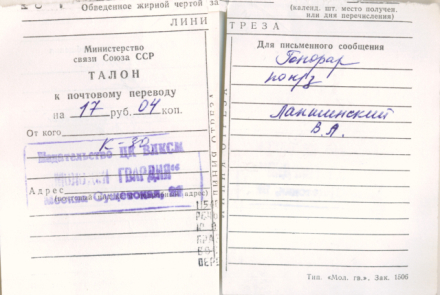 Обведенное жирной чертой за
ЛИНИ
Министерство
связи Союза ССР
ТАЛОН
к почтовому переводу
на 17 руб. 04 коп.
От кого
К-80
Издательство ЦК ВЛКСМ
"МОЛОДАЯ ГВАРДИЯ"
Адрес
(календ. шт. место получен.
или дня перечисления)
ТРЕЗА
Для письменного сообщения
Гонорар
Лакшинский
В.А.
Тип. «Мол. гв.», Зак. 1506